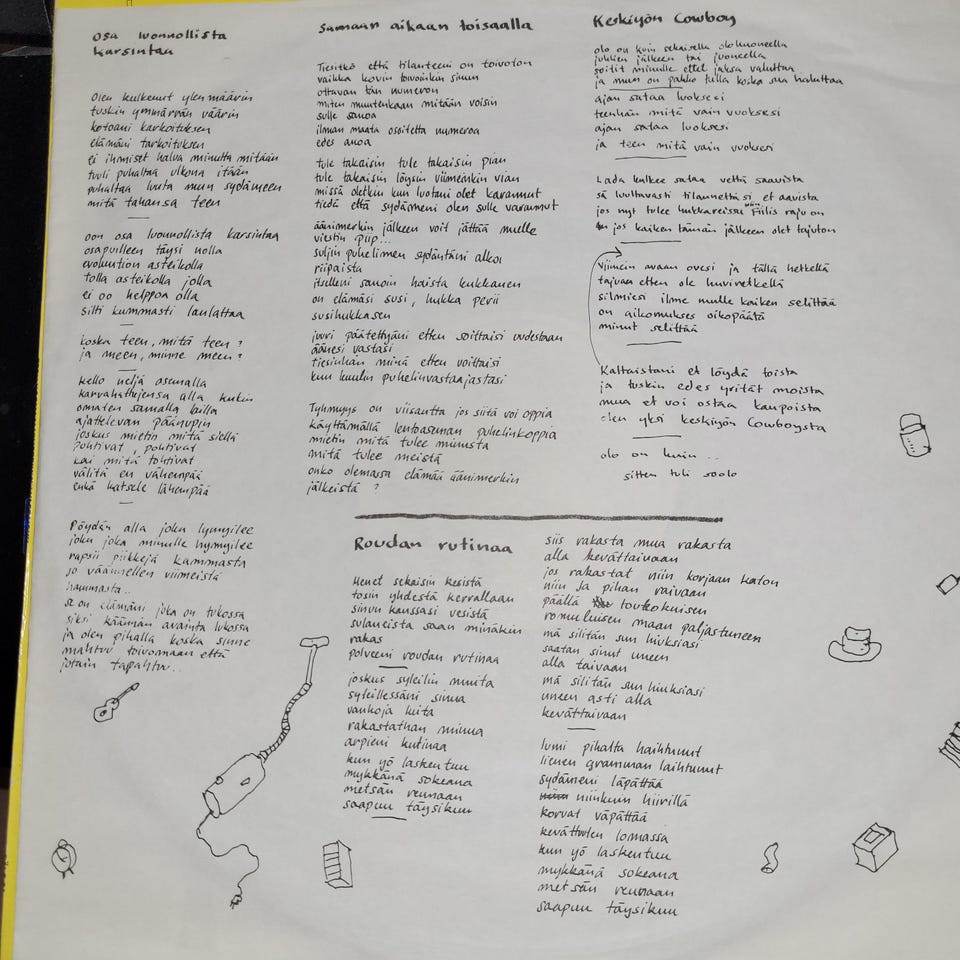 Osa luonnollista
karsintaa
Olen kulkenut ylen määrin
tuskin ymmärrän väärin
kotoani karkoituksen
elämäni tarkoituksen
ei ihmiset halva minutta mitään
tuuli puhaltaa ulkona itään
puhaltaa lunta mun sydämeen
mitä tahansa teen
oon osa luonnollista karsintaa
osapuilleen täysi nolla
evoluution asteikolla
tolla asteikolla jolla
ei oo helppoa olla
silti kummasti laulattaa
koska teen, mitä teen?
ja meen, minne meen?
kello neljä asemalla
karvahattujensa alla kukin
omaten samalla lailla
ajattelevan päänupin
joskus mietin mitä siellä
pohtivat, pohtivat
kai mitä tohtivat
välitä en vähempää
enkä katsele lähempää
Pöydän alla joku lymyilee
joku joka minulle hymyilee
rapsii piikkejä kammasta
jo väännellen viimeistä
hammasta..
se on elämäni joka on tukossa
siksi käännän avainta lukossa
ja olen pihalla koska sinne
mahtuu toivomaan että
jotain tapahtuu..
Samaan aikaan toisaalla
Tiesitkö että tilanteeni on toivoton
vaikka kovin toivoinkin sinun
ottavan tän numeron
miten muutenkaan mitään voisin
sulle sanoa
ilman maata osoitetta numeroa
edes anoa
tule takaisin tule takaisin pian
tule takaisin löysin viimeinkin vian
missä oletkin kun luotani olet karannut
tiedä että sydämeni olen sulle varannut
äänimerkin jälkeen voit jättää mulle
viestin piip...
suljin puhelimen sydäntäni alkoi
riipaista
itselleni sanoin haista kukkanen
on elämäsi susi, hukka perii
susihukkasen
juuri päätettyäni etten soittaisi uudestaan
äänesi vastasi
tiesinhän minä etten voittaisi
kun kuulin puhelinvastaajastasi
Tyhmyys on viisautta jos siitä voi oppia
käyttämällä lentoaseman puhelinkoppia
mietin mitä tulee minusta
mitä tulee meistä
onko olemassa elämää äänimerkin
jälkeistä ?
Keskiyön Cowboy
olo on kuin sekaisella olohuoneella
juhlien jälkeen tai juoneella
soitit minulle ettet jaksa valvottaa
ja mun on pakko tulla koska sua haluttaa
ajan sataa luoksesi
teenhän mitä vain vuoksesi
ajan sataa luoksesi
ja teen mitä vain vuoksesi
Lada kulkee sataa vettä saavista
sä luultavasti tilannettasi et aavista
jos nyt tulee hukkareissu niin fiilis raju on
tai jos kaiken tämän jälkeen olet tajuton
viimein avaan ovesi ja tällä hetkellä
tajuan etten ole huviretkellä
silmiesi ilme mulle kaiken selittää
on aikomukses oikopäätä
minut selittää
Kaltaistani et löydä toista
ja tuskin edes yrität moista
mua et voi ostaa kaupoista
olen yksi keskiyön Cowboysta
olo on kuin ..
sitten tuli soolo
Roudan rutinaa
Menet sekaisin kesistä
tosin yhdestä kerrallaan
sinun kanssasi vesistä
sulaneista saan minäkin
rakas
polveeni roudan rutinaa
joskus syleilin muita
syleillessäni sinua
vanhoja luita
rakastathan minua
arpieni kutinaa
kun yö laskeutuu
mykkänä sokeana
metsän reunaan
saapuu täysikuu
siis rakasta mua rakasta
alla kevättaivaan
jos rakastat niin korjaan katon
niin ja pihan raivaan
päällä toukokuisen
romuluisen maan paljastuneen
mä silitän sun hiuksiasi
saatan sinut uneen
alla taivaan
mä silitän sun hiuksiasi
uneen asti alla
kevättaivaan
lumi pihalta haihtunut
lienen gramman laihtunut
sydämeni läpättää
niinkuin hiirillä
korvat väpättää
kevättuulen lomassa
kun yö laskeutuu
mykkänä sokeana
metsän reunaan
saapuu täysikuu